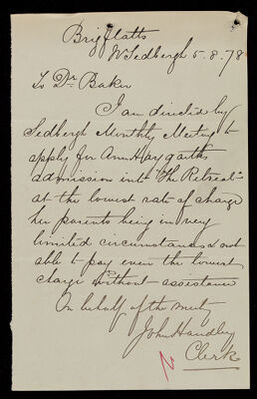 Brigflatts
Nr Sedbergh 5.8.78
To Dr Baker
I am directed by
Sedbergh Monthly Meeting to
apply for Ann Haygarths
admission into "The Retreat"
at the lowest rate of charge
her parents being in very
limited circumstances & not
able to pay even the lowest
charge without assistance
On behalf of the meeting
John Handley
Clerk